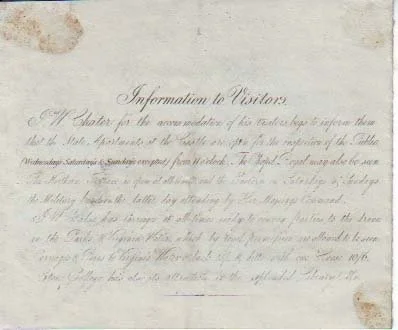 Information to Visitors.
J. W. Chater for the accommodation of his Visitors begs to inform them
that the State Apartments at the Castle are open for the inspection of the Public
(Wednesdays Saturdays & Sundays excepted) from 11 o'clock. The Chapel Royal may also be seen
The Northern Terrace is open at all times and the Eastern on Saturdays & Sundays
the Military the latter day attending by Her Majesty's Command.
J. W. has Carriages at all times ready to convey parties to the
in the Parks & Virginia Water, which by are allowed to be seen
Carriage & Pair to Virginia Water & back with one Horse 10/6
Eton College has also its attraction in the splendid Library &c.